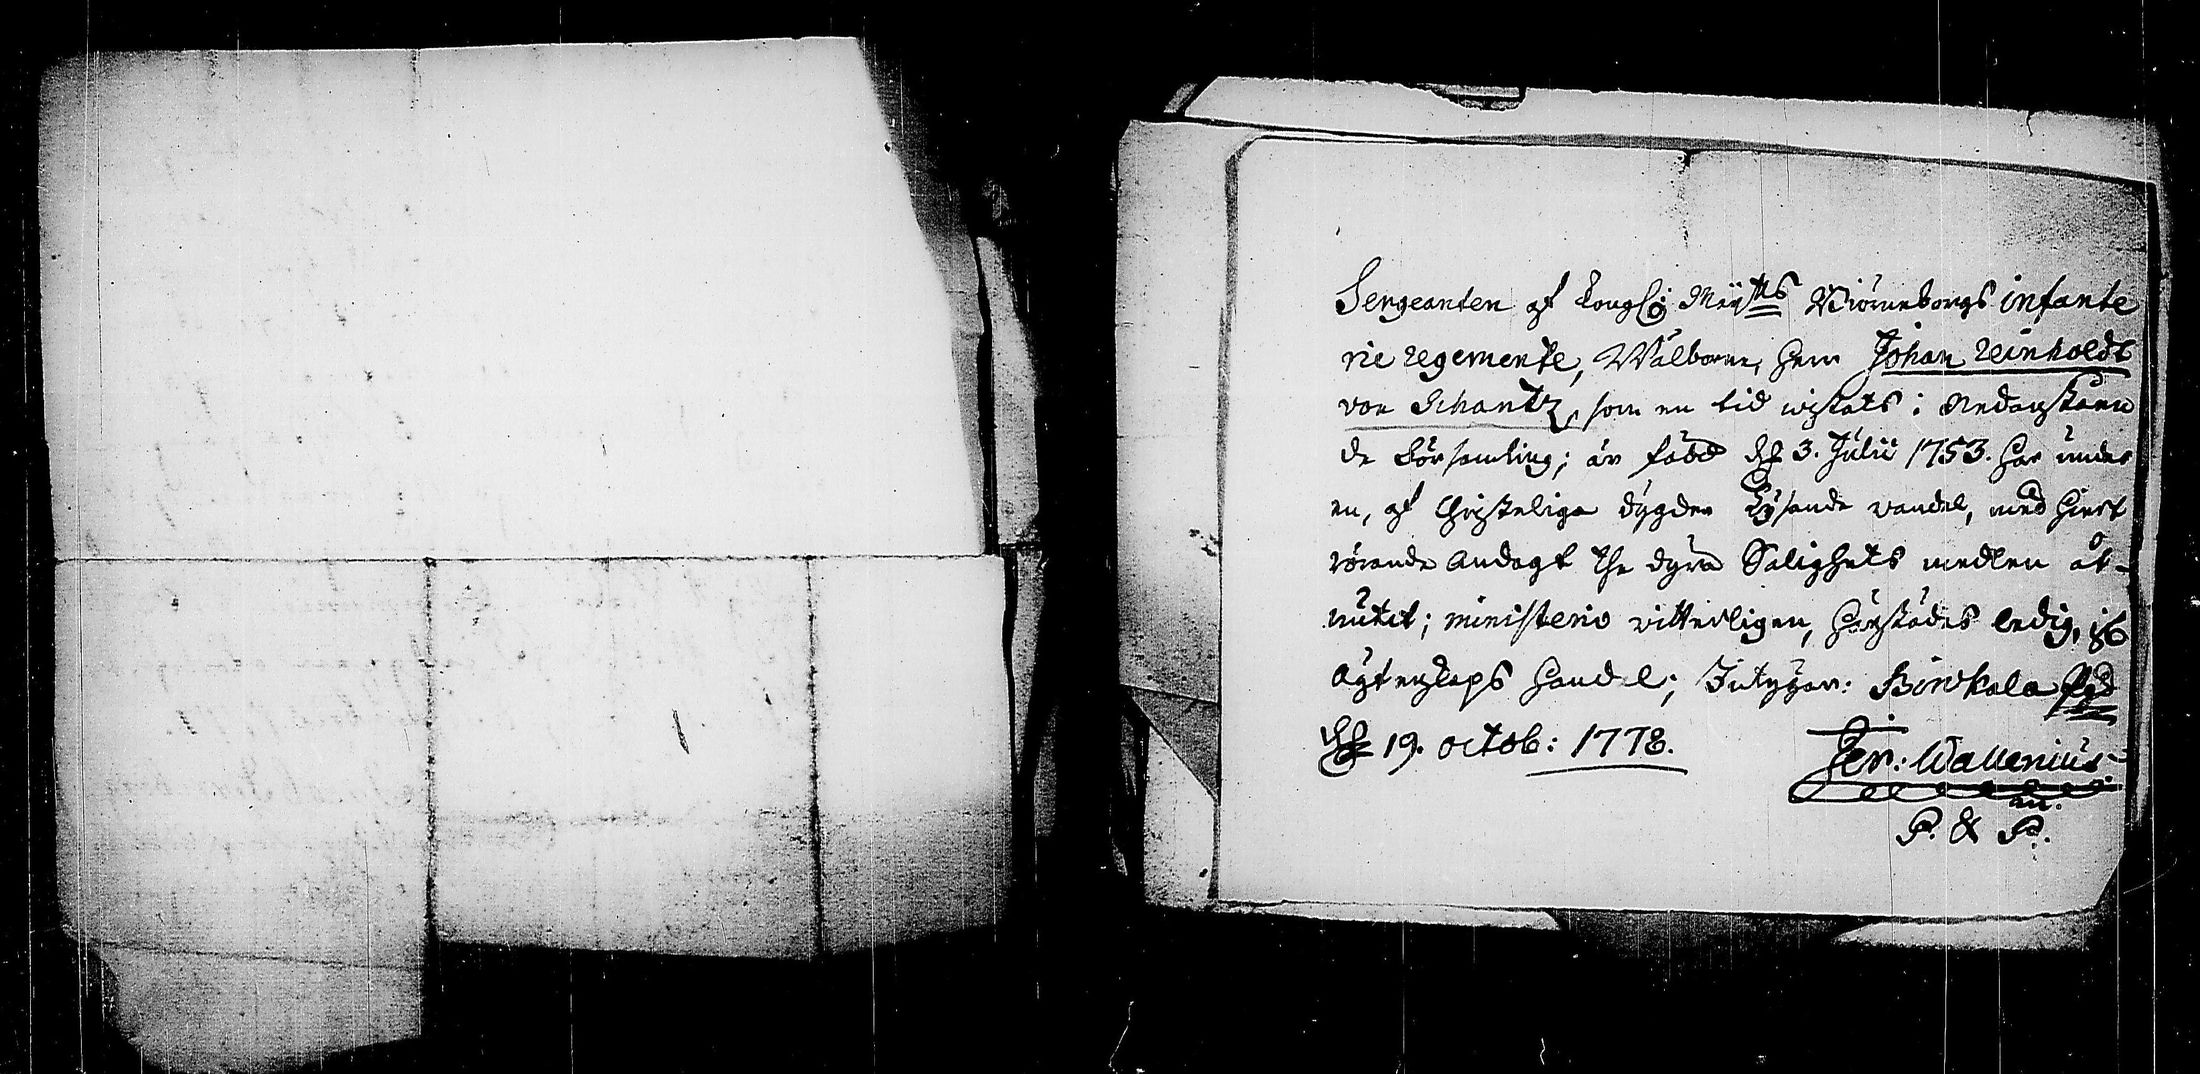 Sergeanten af Kongl: Maÿts Biörneborgs infante
rie regemente, Wälborne Herr Johan Reinholdt
von Schantz, som en tid wistats i nedanstaen
de Församling; är född d 3. Julii 1753. har under
en, af Christeliga dygder Lysande vandel, med Hiert
rörande Andagt the dyra Salighets medlen åt-
nutit; ministerio vitterligen, härstädes ledig,
ägtenskaps handel; Intygar: Birkala Pgd
d 19. octob: 1778.
Jer: Wallenius
P. & P.